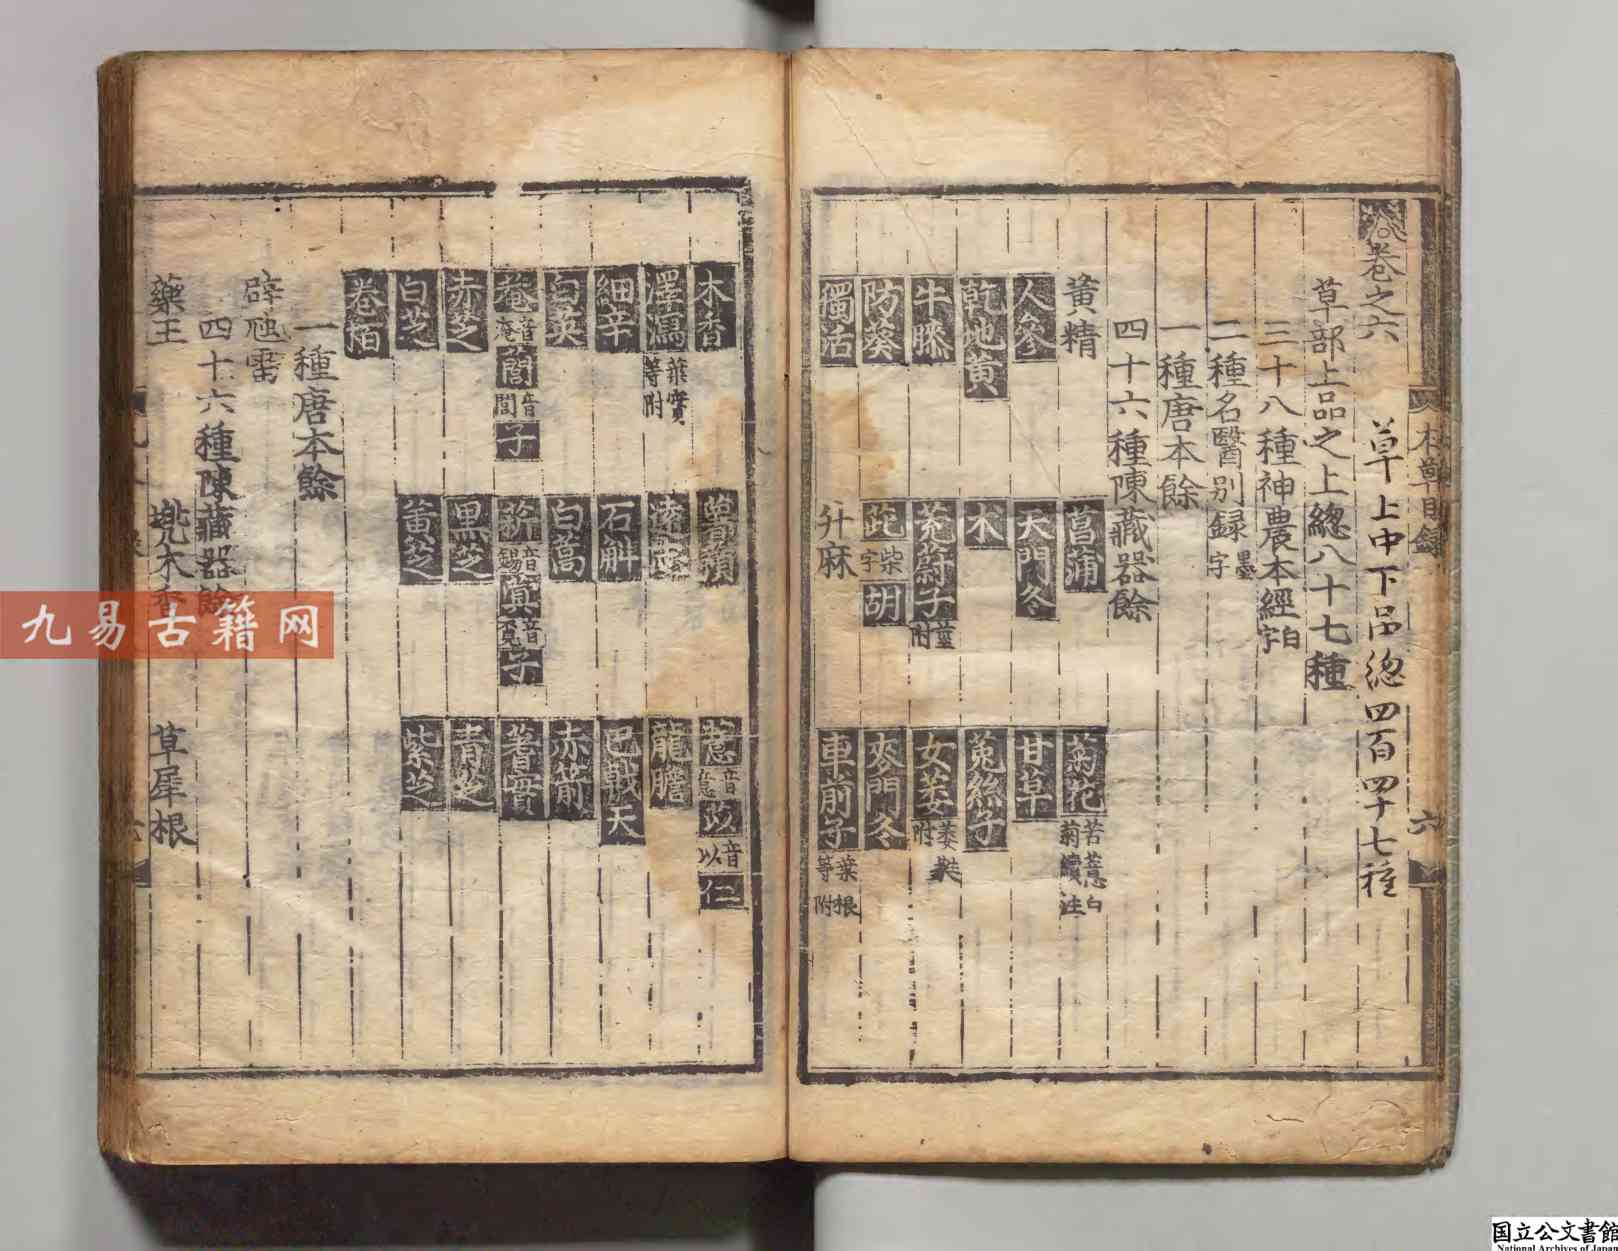 卷之六
草上中下品總四百四十七種
草部上品之上總八十七種
三十八種神農本經白字
二種名醫別録墨字
一種唐本餘
四十六種陳藏器餘
黃精 菖蒲 菊花苦薏白菊續注
人參 天門冬 甘草
乾地黃 朮 菟絲子
牛膝 茺蔚子莖附 女萎萎蕤附
防葵 茈柴字胡 麥門冬
獨活 升麻 車前子葉根等附
本草目錄 六
木香 薯蕷 薏音意苡音以仁
澤瀉葉實等附 遠志 龍膽
細辛 石斛 巴戟天
白英 白蒿 赤箭
菴音淹䕡音閭子 菥音錫蓂音覓子 蓍實
赤芝 黑芝 青芝
白芝 黃芝 紫芝
卷栢
一種唐本餘
辟虺雷
四十六種陳藏器餘
藥王 兠木香 草犀根
九易古籍网
国立公文書館
National Archives of Japan